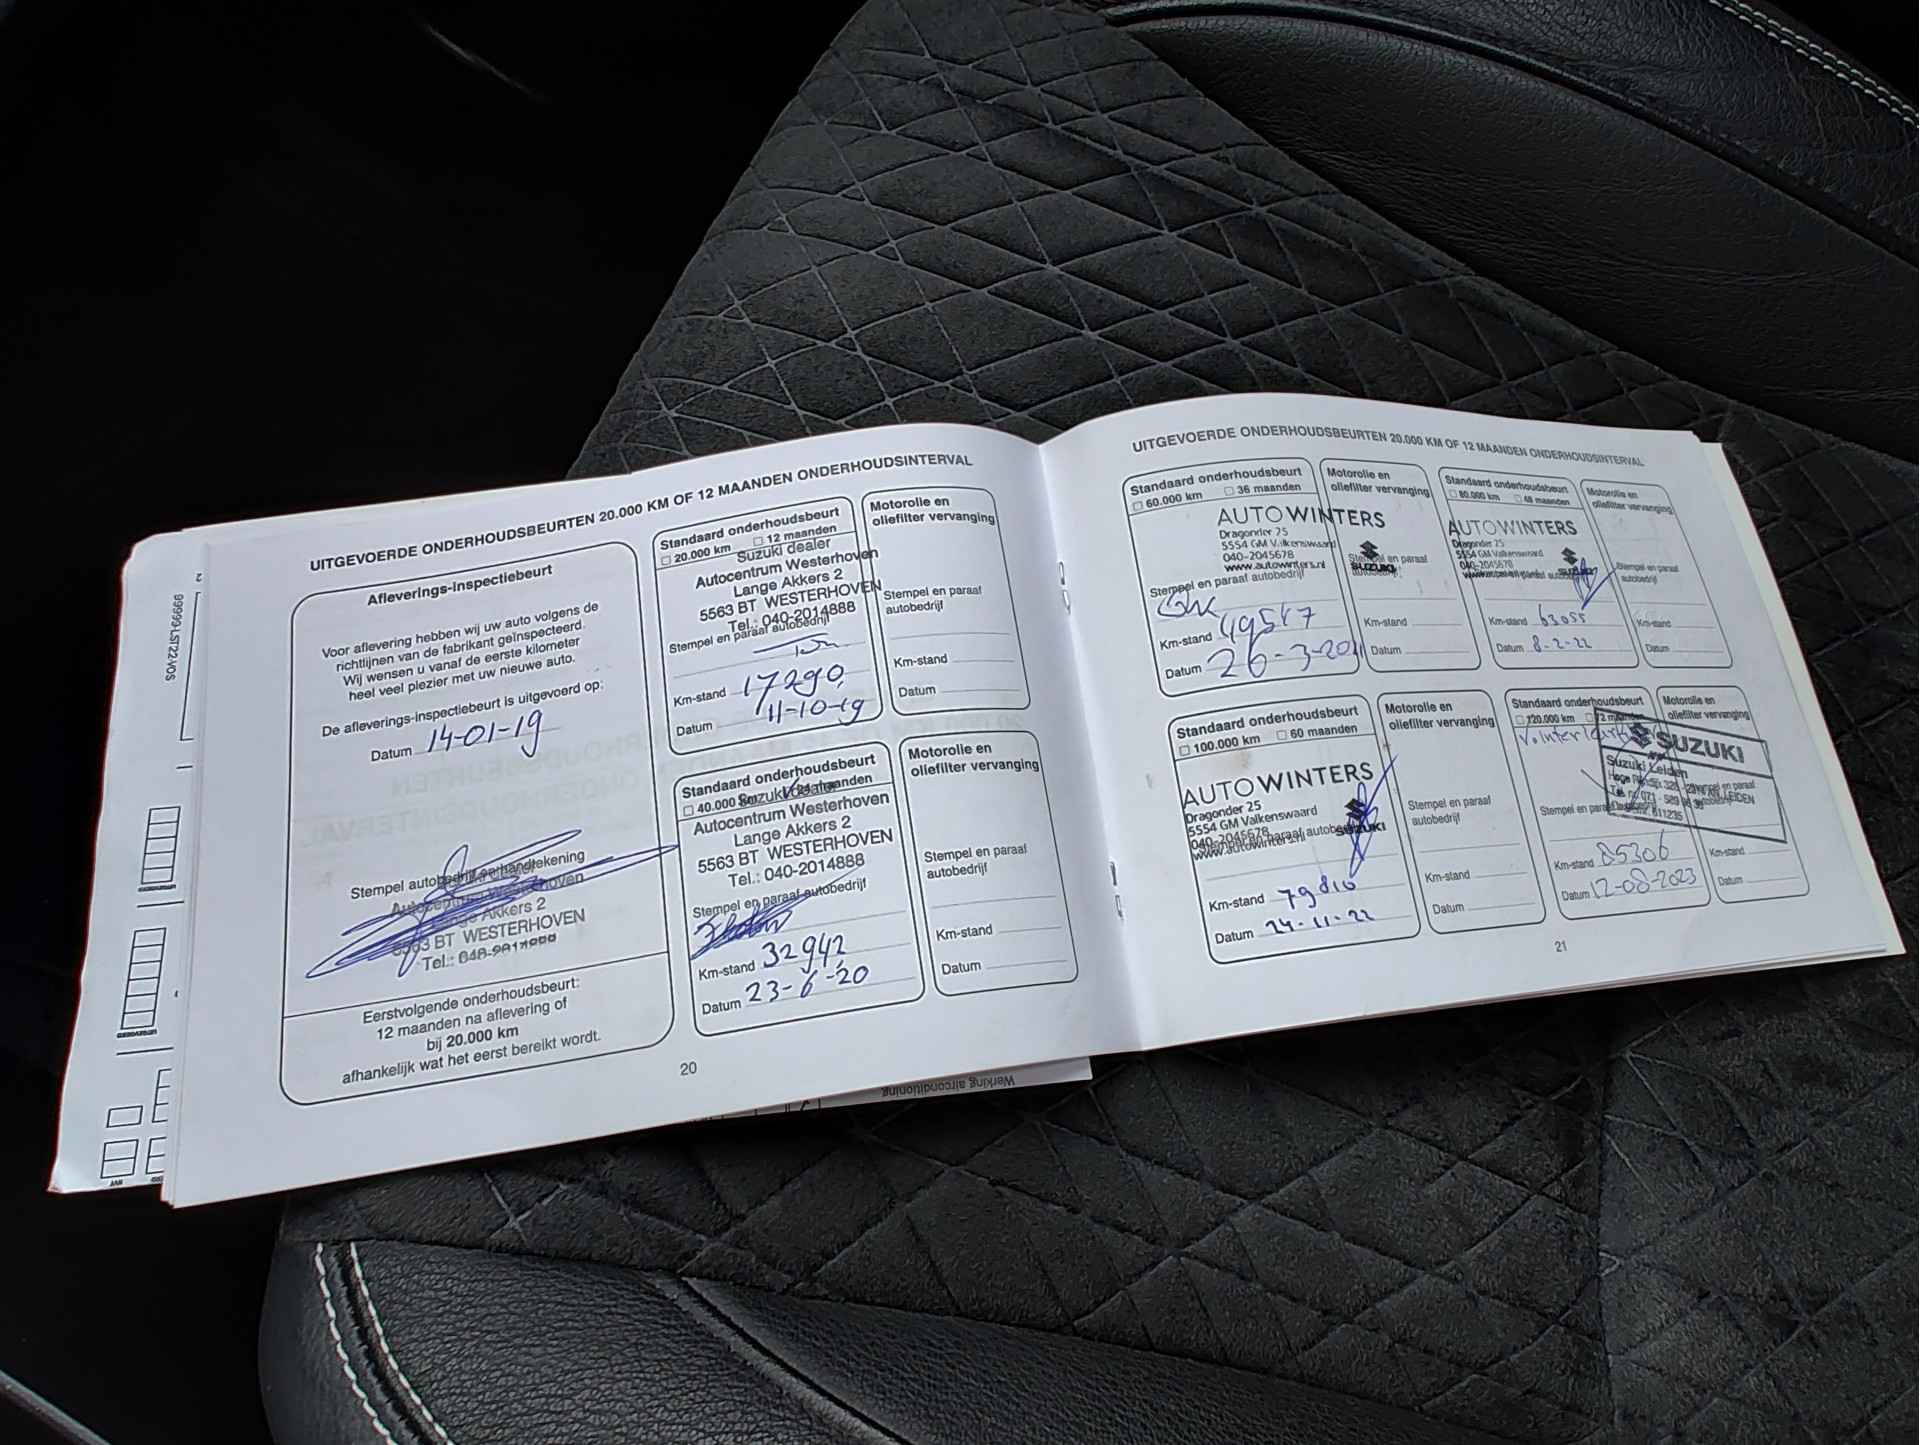 UITGEVOERDE ONDERHOUDSBEURTEN 20.000 KM OF 12 MAANDEN ONDERHOUDSINTERVAL
Afleverings-inspectiebeurt
Voor aflevering hebben wij uw auto volgens de
richtlijnen van de fabrikant geïnspecteerd.
Wij wensen u vanaf de eerste kilometer
heel veel plezier met uw nieuwe auto.
De afleverings-inspectiebeurt is uitgevoerd op:
Datum 14-01-19
Stempel autobedrijf en handtekening
Autocentrum Westerhoven
Lange Akkers 2
5563 BT WESTERHOVEN
Tel.: 040-2014888
Eerstvolgende onderhoudsbeurt:
12 maanden na aflevering of
bij 20.000 km
afhankelijk wat het eerst bereikt wordt.
Standaard onderhoudsbeurt
20.000 km 12 maanden
Suzuki dealer
Autocentrum Westerhoven
Lange Akkers 2
5563 BT WESTERHOVEN
Tel.: 040-2014888
Stempel en paraaf autobedrijf
Km-stand 17290
Datum 11-10-19
Motorolie en
oliefilter vervanging
Stempel en paraaf
autobedrijf
Km-stand
Datum
Standaard onderhoudsbeurt
40.000 km 24 maanden
Suzuki dealer
Autocentrum Westerhoven
Lange Akkers 2
5563 BT WESTERHOVEN
Tel.: 040-2014888
Stempel en paraaf autobedrijf
Km-stand 32942
Datum 23-6-'20
Motorolie en
oliefilter vervanging
Stempel en paraaf
autobedrijf
Km-stand
Datum
20
UITGEVOERDE ONDERHOUDSBEURTEN 20.000 KM OF 12 MAANDEN ONDERHOUDSINTERVAL
Standaard onderhoudsbeurt
60.000 km 36 maanden
AUTOWINTERS
Dragonder 25
5554 GM Valkenswaard
040-2045678
www.autowinters.nl
SUZUKI
Stempel en paraaf autobedrijf
Km-stand 49517
Datum 26-3-2021
Motorolie en
oliefilter vervanging
Stempel en paraaf
autobedrijf
Km-stand
Datum
Standaard onderhoudsbeurt
80.000 km 48 maanden
AUTOWINTERS
Dragonder 25
5554 GM Valkenswaard
040-2045678
www.autowinters.nl
SUZUKI
Km-stand 63055
Datum 8-2-22
Motorolie en
oliefilter vervanging
Stempel en paraaf
autobedrijf
Km-stand
Datum
Standaard onderhoudsbeurt
100.000 km 60 maanden
AUTOWINTERS
Dragonder 25
5554 GM Valkenswaard
040-2045678
www.autowinters.nl
SUZUKI
Stempel en paraaf autobedrijf
Km-stand 79810
Datum 24-11-22
Motorolie en
oliefilter vervanging
Stempel en paraaf
autobedrijf
Km-stand
Datum
Standaard onderhoudsbeurt
120.000 km 72 maanden
SUZUKI
Suzuki Leiden
Stempel en paraaf autobedrijf
Km-stand 85306
Datum 12-08-2023
Motorolie en
oliefilter vervanging
Stempel en paraaf
autobedrijf
Km-stand
Datum
21
99999-LST22-VDS
Werking airconditioning